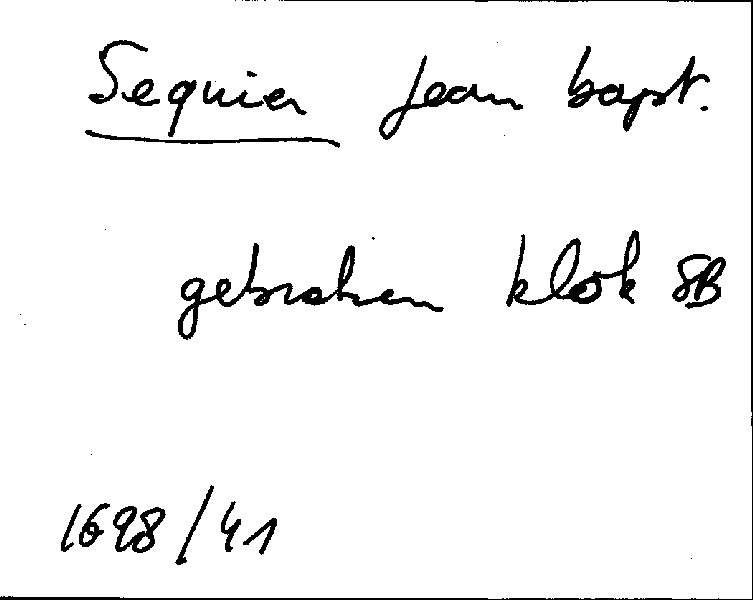 Sequier Jean bapt.
gebroken klok SB
1698/41